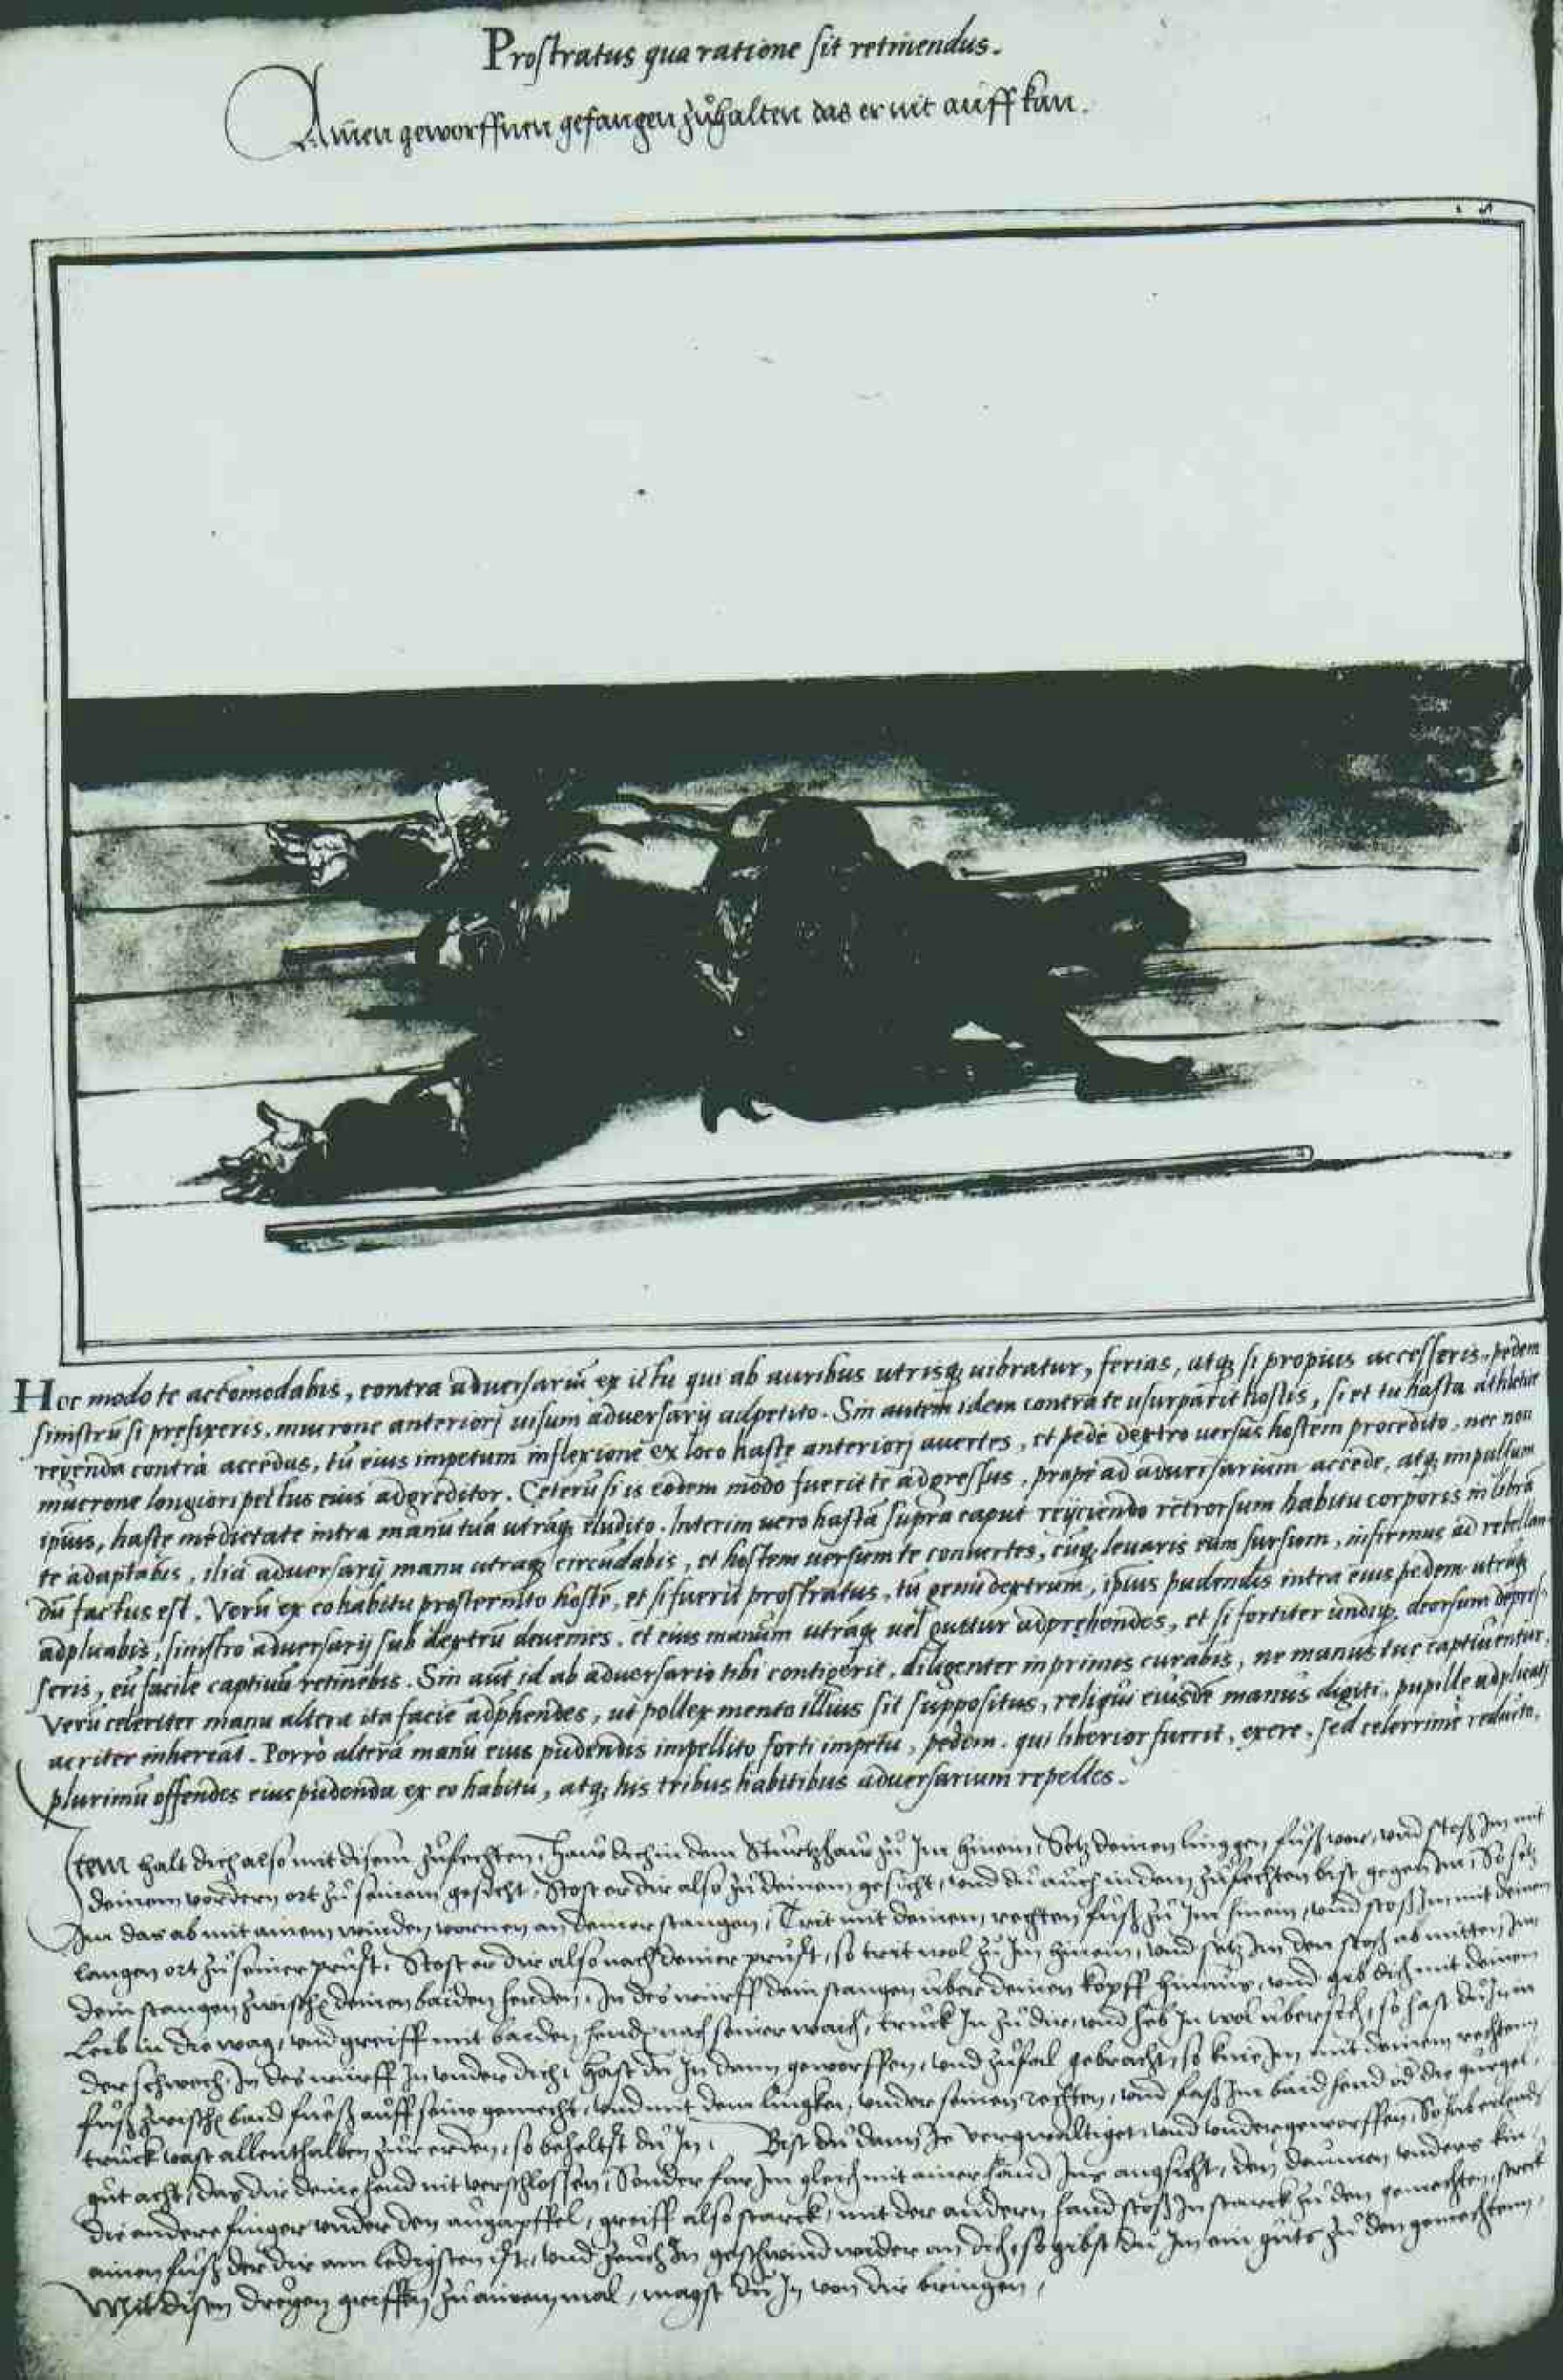 Prostratus qua ratione sit retinendus.
Ainen geworffnen gefangen zůhalten das er nit auff kan.
Hoc modo te accomodabis, contra adversariū ex ictu qui ab auribus utrisq; vibratur, ferias, atq; si propius accesseris, pedem
sinistrū si prefixeris, mucrone anteriori visum adversarij adpetito. Sin autem idem contra te usurparit hostis, si et tu hasta athletice
reijcienda contrà accedas, tū eius impetum inflexione ex loco haste anteriori avertes, et pede dextro versus hostem procedito, nec non
mucrone longiori pectus eius adgreditor. Ceterū si is eodem modo fuerit te adgressus, propè ad adversarium accede, atq; impulsum
ipsius, haste medietate intra manū tuā utrāq; eludito. Interim vero hastā supra caput reijciendo retrorsum habitu corporis in librā
te adaptabis, ilia adversarij manu utraq; circūdabis, et hostem versum te convertes, cūq; levaris eum sursum, infirmus ad rebellan-
dū factus est. Verū ex eo habitu prosternito hostē, et si fuerit prostratus, tū genu dextrum, ipsius pudendis intra eius pedem utrūq;
adplicabis, sinistro adversarij sub dextrū devenies, et eius manum utraq; vel guttur adprehendes, et si fortiter undiq; deorsum depres-
seris, eū facile captivū retinebis. Sin aūt id ab adversario tibi contigerit, diligenter inprimis curabis, ne manus tue captiventur,
verū celeriter manu altera ita faciē adphendes, ut pollex mento illius sit suppositus, reliqui eiusdē manus digiti, pupille adplicati
acriter inhereāt. Porrò alterā manū eius pudendis impellito forti impetu, pedem, qui liberior fuerit, exere, sed celerrimè reducito,
plurimū offendes eius pudenda ex eo habitu, atq; his tribus habitibus adversarium repelles.
Item halt dich also mit disem zůfechten, Haw dich in dem Sturtzhaw zů Im hinein, Setz deinen linggen fůß vor, und stoß Im mit
deinem vordern ort zů seinem gesicht, Stost er dir also zů deinem gesicht, und du auch in dem zůfechten bist gegen Im, So setz
Im das ab mit ainem winden vornen an deiner stangen, Trit mit deinem rechten fůß zů Im hinein, und stoß Im mit deinem
langen ort zů seiner prust, Stost er dir also nach deiner prust, so trit wol zů Im hinein, und setz Im den stoß ab mitten Im
dein stangen zwischē deinen baiden henden, In des würff dein stangen über deinen kopff hinaus, und gib dich mit deinem
Leib in die wag, und greiff mit baiden hendē nach seiner waich, truck In zů dir, und heb In wol übersich, so hast du In in
der schwech, In des würff In under dich, hast du In dann geworffen, und zůfal gebracht, so knie Im mit deinem rechten
fůß zwischē baid füeß auff seine gemecht, und mit dem lingken, under seinen rechten, und faß Im baid hend od die gurgel,
truck vast allenthalben zur erden, so beheltst du In, Bist du dann Je vergwaltiget, und undergeworffen, So hab eilends
gůt acht, das dir deine hend nit verschlossen, Sonder far Im gleich mit ainer hand Ins angsicht, den daumen unders kin,
die andere finger under den augapffel, greiff also starck, mit der andern hand stoß In starck zů den gemechten, streck
ainen fůß der dir am ledigsten ist, und zeuch In geschwind wider an dich, so gibst du Im ein gůts zů den gemechten,
Mit disen dreyen griffen zů ainem mal, magst du In von dir bringen,